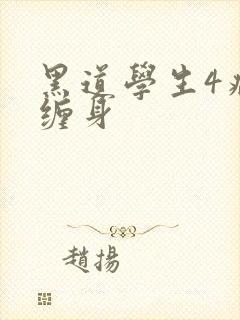 黑道學生4
缠身
趙揚